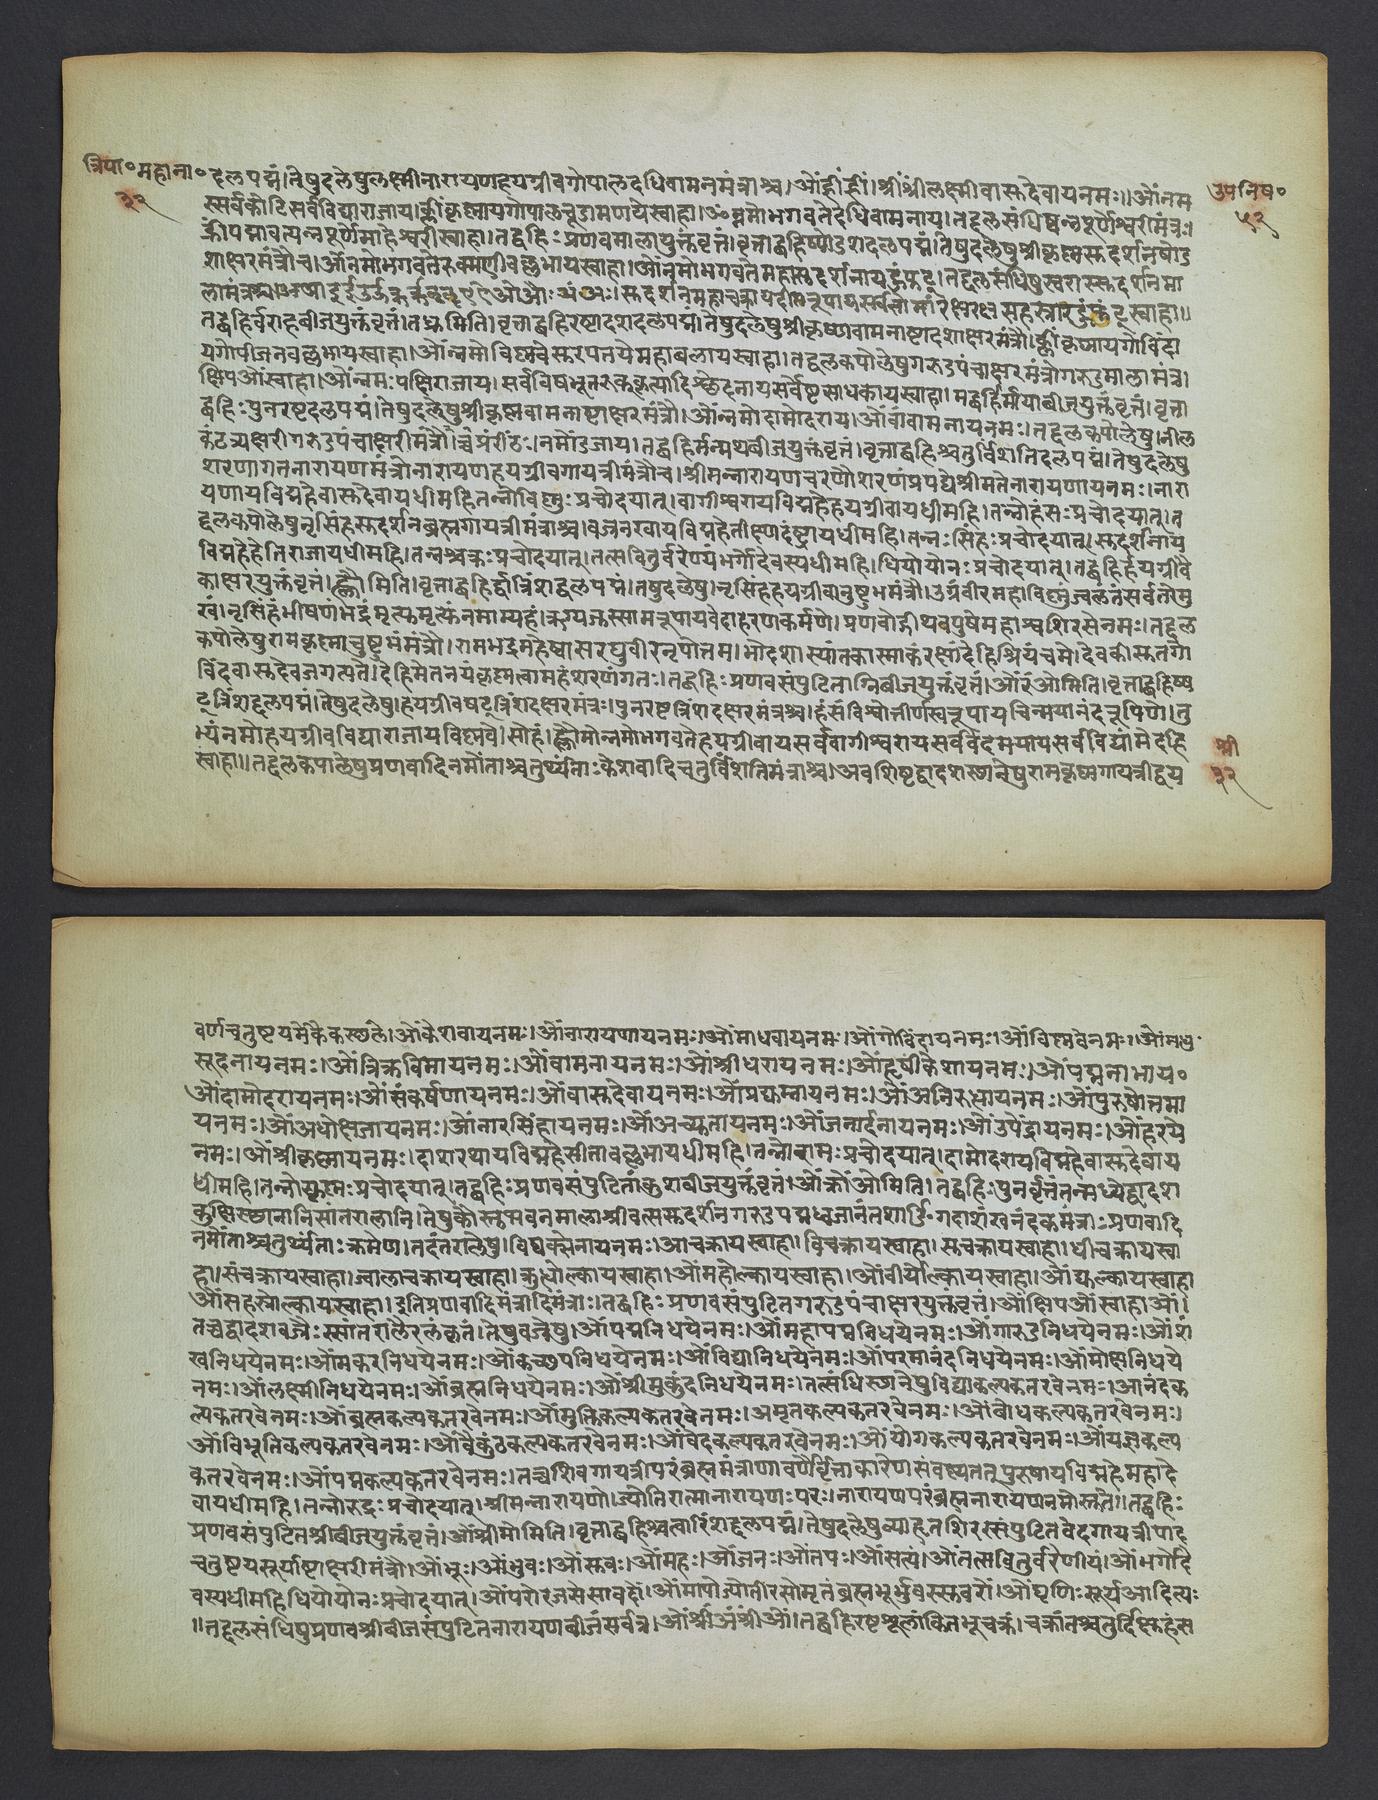 त्रिपा॰महाना॰
३२
उपनिष॰
५२
दलपद्मं।तेषुदलेषुलक्ष्मीनारायणहयग्रीवगोपालदधिवामनमंत्राश्च।ओंह्रींह्रीं।श्रींश्रींलक्ष्मीवासुदेवायनमः॥ओंनम
स्सर्वकोटिसर्वविद्याराजाय।क्लींकृष्णायगोपालचूडामणयेस्वाहा।ॐनमोभगवतेदधिवामनाय।तद्दलसंधिष्वन्नपूर्णेश्वरीमंत्रः।
ह्रींपद्मावत्यन्नपूर्णेमाहेश्वरीस्वाहा।तद्बहिःप्रणवमालायुक्तंवृत्तं।वृत्ताद्बहिष्षोडशदलपद्मं।तेषुदलेषुश्रीकृष्णसुदर्शनषोड
शाक्षरमंत्रौच।ओंनमोभगवतेरुक्मिणीवल्लभायस्वाहा।ओंनमोभगवतेमहासुदर्शनायहुंफट्।तद्दलसंधिषुस्वरास्सुदर्शनमा
लामंत्रश्च।अआइईउऊऋॠऌॡएऐओऔअंअः।सुदर्शनमहाचक्रायदीप्तरूपायसर्वतोमांरक्षरक्षसहस्रारहुंफट्स्वाहा॥
तद्बहिर्वराहबीजयुक्तंवृत्तं।तद्धुमिति।वृत्ताद्बहिरष्टादशदलपद्मं।तेषुदलेषुश्रीकृष्णवामनाष्टादशाक्षरमंत्रौ।क्लींकृष्णायगोविंदा
यगोपीजनवल्लभायस्वाहा।ओंन्नमोविष्णवेसुरपतयेमहाबलायस्वाहा।तद्दलकपोलेषुगरुडपंचाक्षरमंत्रोगरुडमालामंत्र।
क्षिपओंस्वाहा।ओंन्नमःपक्षिराजाय।सर्वविषभूतरक्षःकृत्यादिच्छेदनायसर्वेष्टसाधकायस्वाहा।मद्बहिर्मायाबीजयुक्तंवृत्तं।वृत्ता
द्बहिःपुनरष्टदलपद्मं।तेषुदलेषुश्रीकृष्णवामनाष्टाक्षरमंत्रौ।ओंन्नमोदामोदराय।ओंवांवामनायनमः।तद्दलकपोलेषु।नील
कंठत्र्यक्षरीगरुडपंचाक्षरीमंत्रौ।प्रेंरींठः।नमोंडजाय।तद्बहिर्मन्मथबीजयुक्तंवृत्तं।वृत्ताद्बहिश्चतुर्विंशतिदलपद्मं।तेषुदलेषु
शरणागतनारायणमंत्रोनारायणहयग्रीवगायत्रीमंत्रौच।श्रीमन्नारायणचरणौशरणंप्रपद्येश्रीमतेनारायणायनमः।नारा
यणायविद्महेवासुदेवायधीमहितन्नोविष्णुःप्रचोदयात्।वागीश्वरायविद्महेहयग्रीवायधीमहि।तन्नोहंसःप्रचोदयात्।त
द्दलकपोलेषुनृसिंहसुदर्शनब्रह्मगायत्रीमंत्राश्च।वज्रनखायविद्महेतीक्ष्णदंष्ट्रायधीमहि।तन्नःसिंहःप्रचोदयात्।सुदर्शनाय
विद्महेहेतिराजायधीमहि।तन्नश्चक्रःप्रचोदयात्।तत्सवितुर्वरेण्यंभर्गोदेवस्यधीमहि।धियोयोनःप्रचोदयात्।तद्बहिर्हयग्रीवै
काक्षरयुक्तंवृत्तं।ह्सौमिति।वृत्ताद्बहिर्द्वात्रिंशद्दलपद्मं।तेषुदलेषु।नृसिंहहयग्रीवानुष्टुभमंत्रौ।उग्रंवीरंमहाविष्णुंज्वलंतंसर्वतोमु
खं।नृसिंहंभीषणंभद्रंमृत्युमृत्युंनमाम्यहं।ऋग्यजुस्सामरूपायवेदाहरणकर्मणे।प्रणवोद्गीथवपुषेमहाश्वशिरसेनमः।तद्दल
कपोलेषुरामकृष्णानुष्टुभमंत्रौ।रामभद्रमहेष्वासरघुवीरनृपोत्तम।भोदशास्यांतकास्माकंरक्षांदेहिश्रियंचमे।देवकीसुतगो
विंदवासुदेवजगत्पते।देहिमेतनयंकृष्णत्वामहंशरणंगतः।तद्बहिःप्रणवसंपुटिताग्निबीजयुक्तंवृत्तं।ओंरंओमिति।वृत्ताद्बहिष्ष
ट्त्रिंशद्दलपद्मं।तेषुदलेषु।हयग्रीवषट्त्रिंशदक्षरमंत्रः।पुनरष्टत्रिंशदक्षरमंत्रश्च।हंसंविश्वोत्तीर्णस्वरूपायचिन्मयानंदरूपिणे।तु
भ्यंनमोहयग्रीवविद्याराजायविष्णवे।सोहं।ह्सौमोन्नमोभगवतेहयग्रीवायसर्ववागीश्वरायसर्ववेदमयायसर्वविद्यांमेदेहि
स्वाहा॥तद्दलकपोलेषुप्रणवादिनमोंताश्चतुर्थ्यंताःकेशवादिचतुर्विंशतिमंत्राश्च।अवशिष्टद्वादशस्थानेषुरामकृष्णगायत्रीद्वय
श्री
३२
वर्णचतुष्टयमेकैकस्थले।ओंकेशवायनमः।ओंनारायणायनमः।ओंमाधवायनमः।ओंगोविंदायनमः।ओंविष्णवेनमः।ओंमधु
सूदनायनमः।ओंत्रिक्रविमायनमः।ओंवामनायनमः।ओंश्रीधरायनमः।ओंहृषीकेशायनमः।ओंपद्मनाभाय॰
ओंदामोदरायनमः।ओंसंकर्षणायनमः।ओंवासुदेवायनमः।ओंप्रद्युम्नायनमः।ओंअनिरुद्धायनमः।ओंपुरुषोत्तमा
यनमः।ओंअधोक्षजायनमः।ओंनारसिंहायनमः।ओंअच्युतायनमः।ओंजनार्दनायनमः।ओंउपेंद्रायनमः।ओंहरये
नमः।ओंश्रीकृष्णायनमः।दाशरथायविद्महेसीतावल्लभायधीमहि।तन्नोरामःप्रचोदयात्।दामोदरायविद्महेवासुदेवाय
धीमहि।तन्नोकृष्णःप्रचोदयात्।तद्बहिःप्रणवसंपुटितांकुशबीजयुक्तंवृत्तं।ओंक्रोंओमिति।तद्बहिःपुनर्वृत्तंतन्मध्येद्वादश
कुक्षिस्थानानिसांतरालानि।तेषुकौस्तुभवनमालाश्रीवत्ससुदर्शनगरुडपद्मध्वजानंतशार्ङ्गगदाशंखनंदकमंत्राःप्रणवादि
नमोंताश्चतुर्थ्यंताःक्रमेण।तदंतरालेषु।विष्वक्सेनायनमः।आचक्रायस्वाहा।विचक्रायस्वाहा।सुचक्रायस्वाहा।धीचक्रायस्वा
हा।संचक्रायस्वाहा।ज्वालाचक्रायस्वाहा।क्रुद्धोल्कायस्वाहा।ओंमहोल्कायस्वाहा।ओंवीर्योल्कायस्वाहा।ओंद्युल्कायस्वाहा
ओंसहस्रोल्कायस्वाहा।इतिप्रणवादिमंत्रादिमंत्राः।तद्बहिःप्रणवसंपुटितगरुडपंचाक्षरयुक्तंवृत्तं।ओंक्षिपओंस्वाहाओं।
तच्चद्वादशवज्रैःस्सांतरालैरलंकृतं।तेषुवज्रेषु।ओंपद्मनिधयेनमः।ओंमहापद्मनिधयेनमः।ओंगारुडनिधयेनमः।ओंशं
खनिधयेनमः।ओंमकरनिधयेनमः।ओंकच्छपनिधयेनमः।ओंविद्यानिधयेनमः।ओंपरमानंदनिधयेनमः।ओंमोक्षनिधये
नमः।ओंलक्ष्मीनिधयेनमः।ओंब्रह्मनिधयेनमः।ओंश्रीमुकुंदनिधयेनमः।तत्संधिस्थानेषुविद्याकल्पकतरवेनमः।आनंदक
ल्पकतरवेनमः।ओंब्रह्मकल्पकतरवेनमः।ओंमुक्तिकल्पकतरवेनमः।अमृतकल्पकतरवेनमः।ओंबोधकल्पकतरवेनमः।
ओंविभूतिकल्पकतरवेनमः।ओंवैकुंठकल्पकतरवेनमः।ओंवेदकल्पकतरवेनमः।ओंयोगकल्पकतरवेनमः।ओंयज्ञकल्प
कतरवेनमः।ओंपद्मकल्पकतरवेनमः।तच्चशिवगायत्रीपरंब्रह्ममंत्राणांवर्णैर्वृत्ताकारेणसंवेष्ट्यतत्पुरुषायविद्महेमहादे
वायधीमहि।तन्नोरुद्रःप्रचोदयात्।श्रीमन्नारायणो।ज्योतिरात्मानारायणःपरः।नारायणपरंब्रह्मनारायणनमोस्तुते।तद्बहिः
प्रणवसंपुटितश्रीबीजयुक्तंवृत्तं।ओंश्रीमोमिति।वृत्ताद्बहिश्चत्वारिंशद्दलपद्मं।तेषुदलेषुव्याहृतशिरस्संपुटितवेदगायत्रीपाद
चतुष्टयसूर्याष्टाक्षरीमंत्रौ।ओंभूः।ओंभुवः।ओंसुवः।ओंमहः।ओंजनः।ओंतपः।ओंसत्यं।ओंतत्सवितुर्वरेणीयं।ओंभर्गोदे
वस्यधीमहिधियोयोनःप्रचोदयात्।ओंपरोरजसेसावदों।ओंमापोज्योतीरसोमृतंब्रह्मभूर्भुवस्सुवरों।ओंघृणिःसूर्यआदित्यः
॥तद्दलसंधिषुप्रणवश्रीबीजसंपुटितनारायणबीजंसर्वत्र।ओंश्रींअंश्रींओं।तद्बहिरष्टशूलांकितभूचक्रं।चक्रांतश्चतुर्दिक्षुहंस